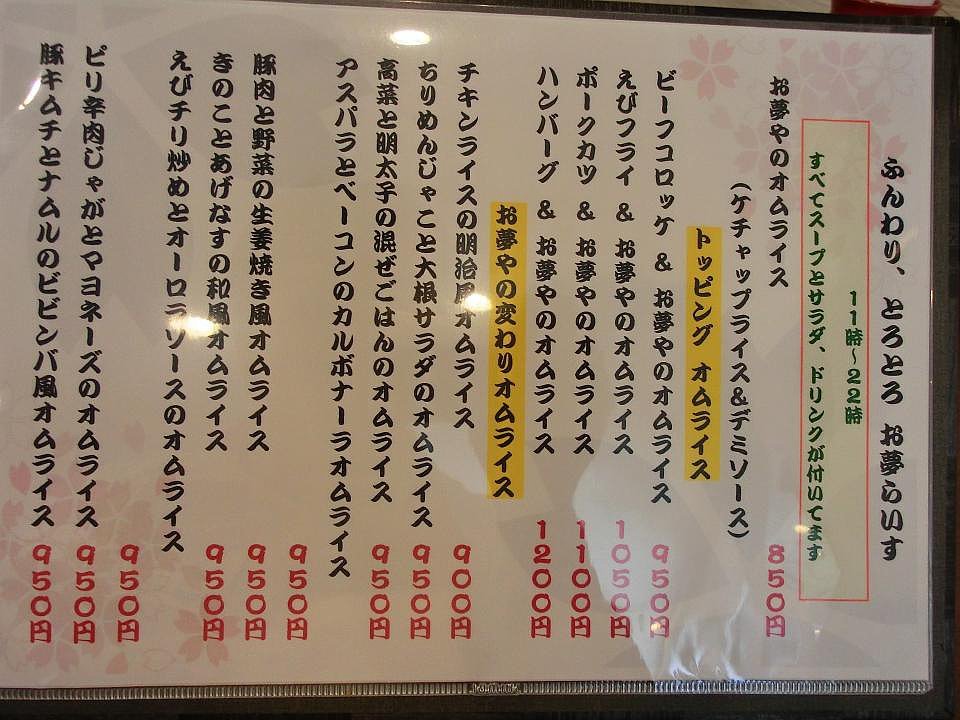 ふんわり、とろとろ お夢らいす
11時~22時
すべてスープとサラダ、ドリンクが付いてます
お夢やのオムライス 850円
(ケチャップライス&デミソース)
トッピング オムライス
ビーフコロッケ & お夢やのオムライス 950円
えびフライ & お夢やのオムライス 1050円
ポークカツ & お夢やのオムライス 1100円
ハンバーグ & お夢やのオムライス 1200円
お夢やの変わりオムライス
チキンライスの明治風オムライス 900円
ちりめんじゃこと大根サラダのオムライス 950円
高菜と明太子の混ぜごはんのオムライス 950円
アスパラとベーコンのカルボナーラオムライス 950円
豚肉と野菜の生姜焼き風オムライス 950円
きのことあげなすの和風オムライス 950円
えびチリ炒めとオーロラソースのオムライス 950円
ピリ辛肉じゃがとマヨネーズのオムライス 950円
豚キムチとナムルのビビンバ風オムライス 950円